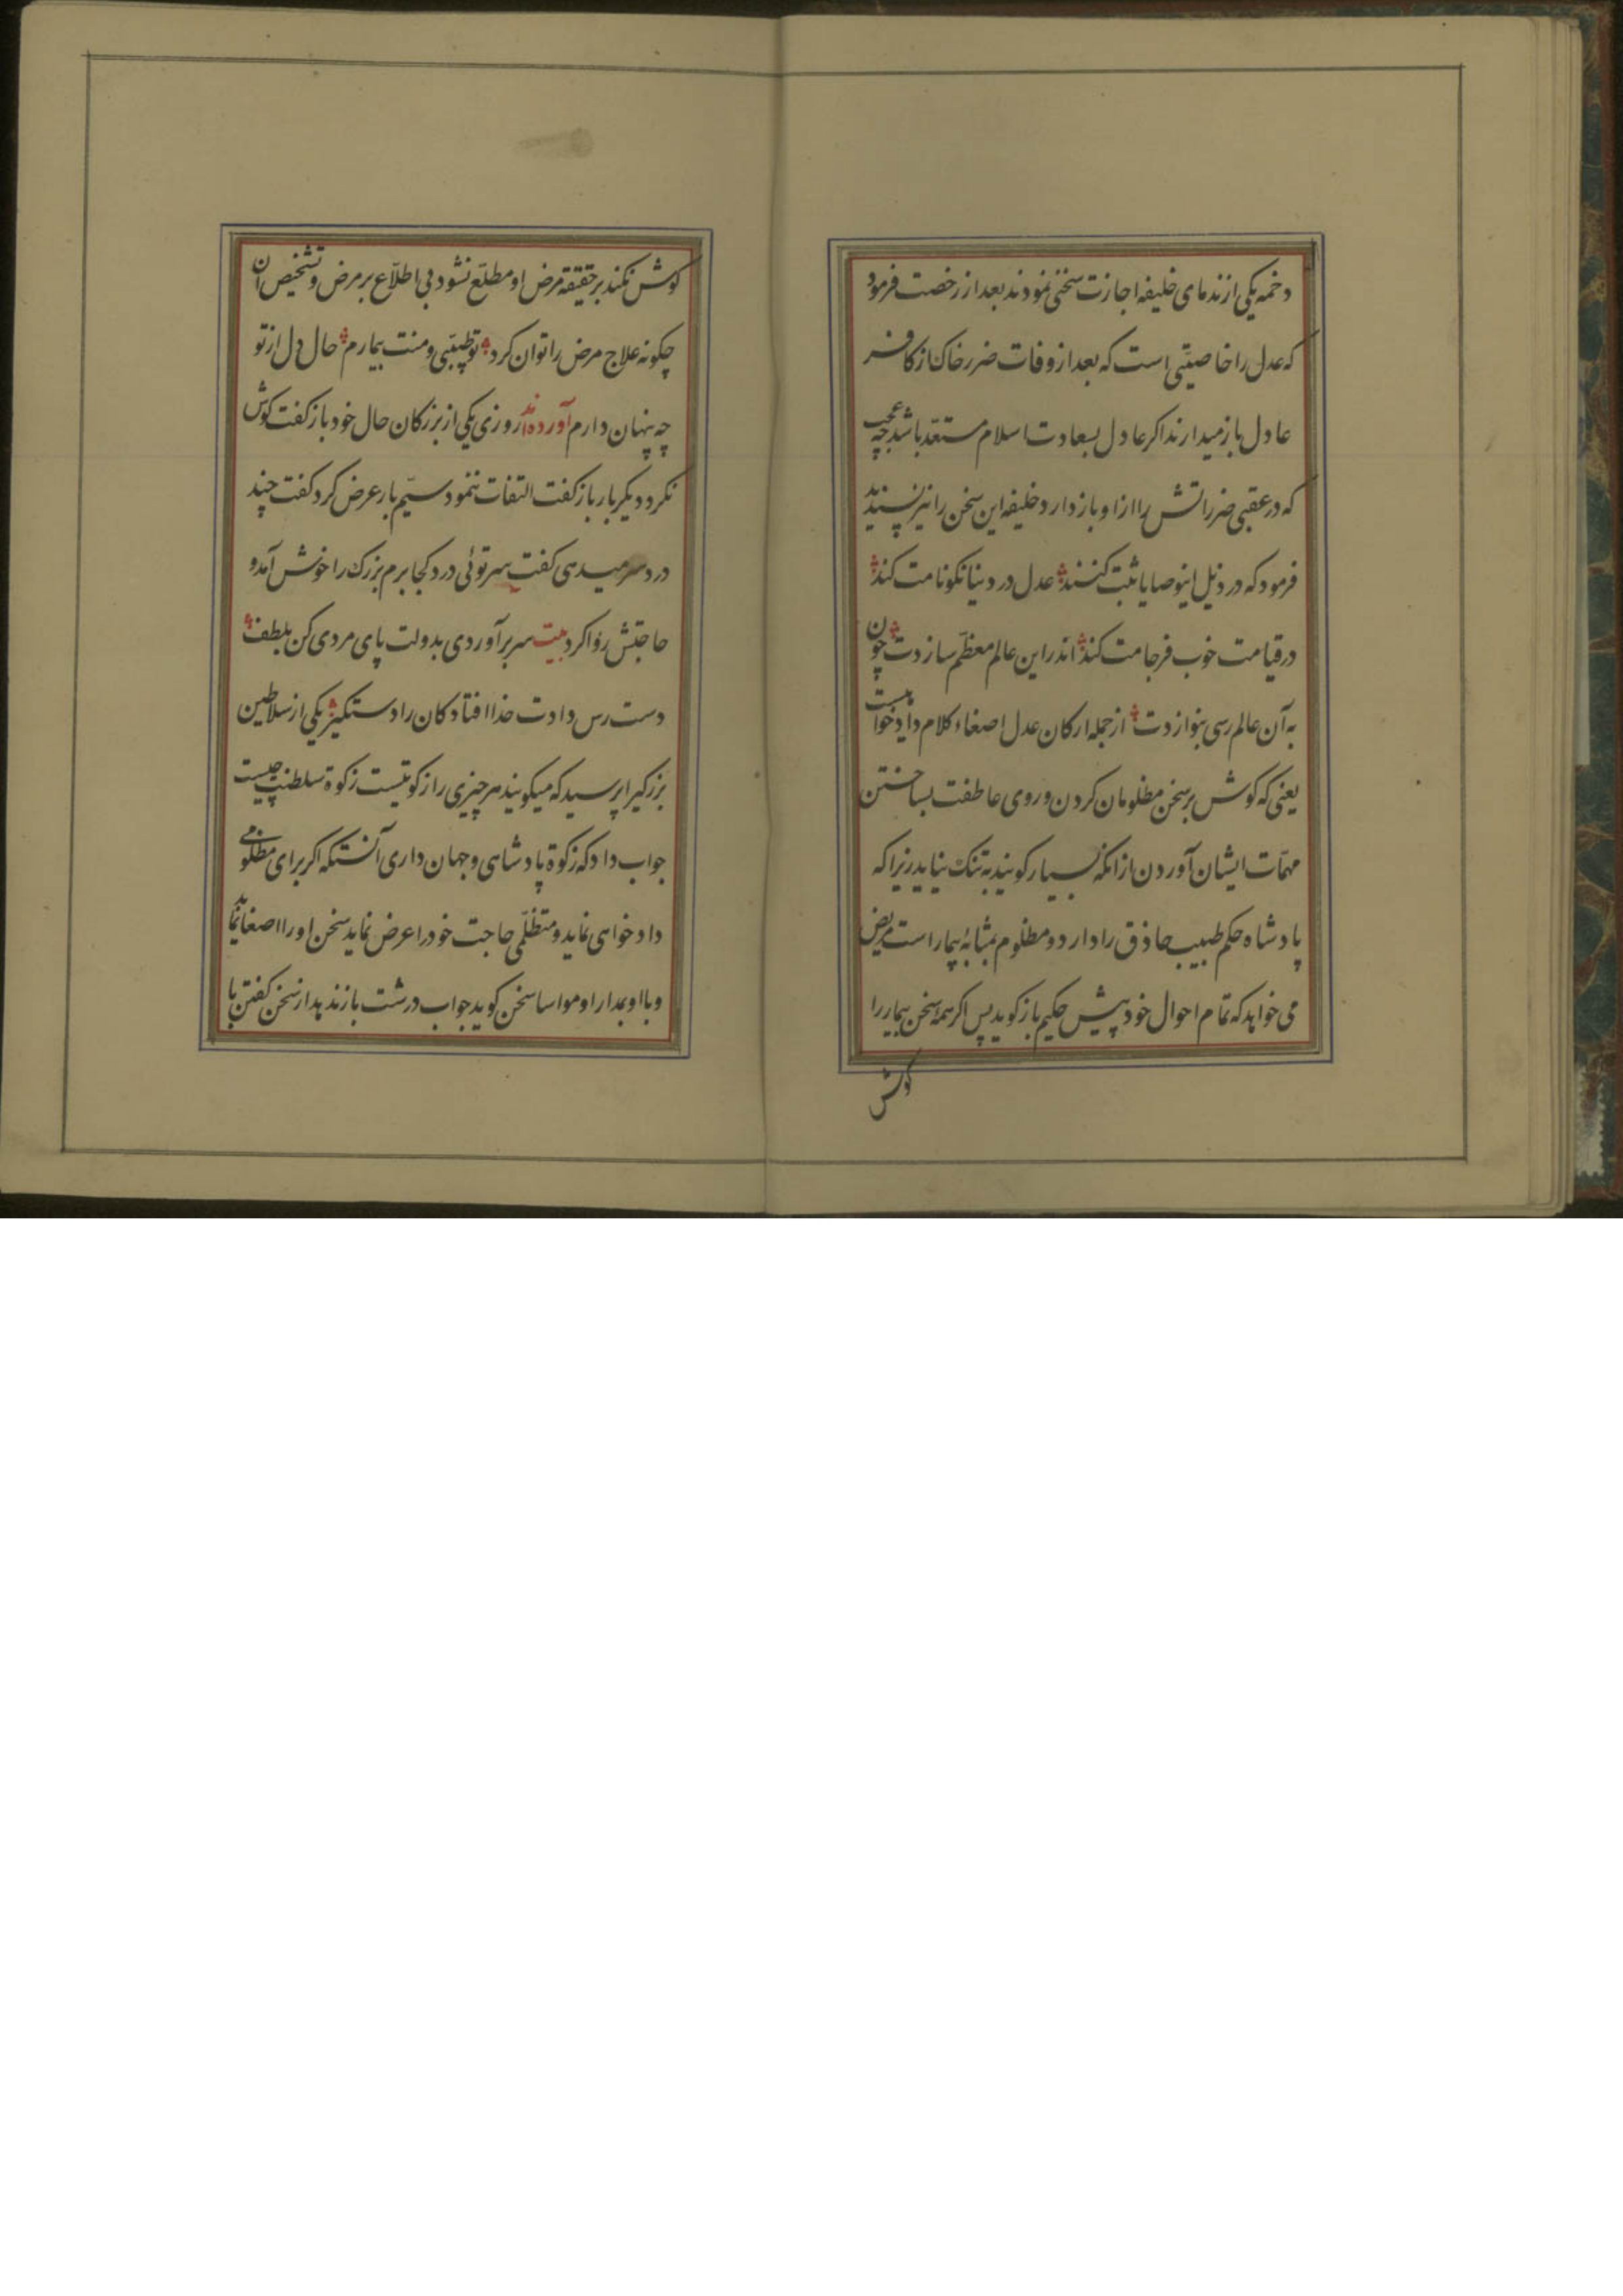 دخمه یکی از ندمای خلیفه اجازت سخنی نمودند بعد از رخصت فرمود
که عدل را خاصیّتی است که بعد از وفات ضرر خاک از کافر
عادل باز میدارند اکر عادل بسعادت اسلام مستعدّ باشد چه عجب
که در عقبی ضرر آتش را از او باز دارد خلیفه این سخن را نیز پسندید
فرمود که در ذیل اینوصایا ثبت کنند عدل در دنیا نکونامت کند
در قیامت خوب فرجامت کند اندر این عالم معظّم سازدت چون
به آن عالم رسی بنوازدت از جمله ارکان عدل اصغاء کلام داد خواهیست
یعنی که کوش بر سخن مظلومان کردن و روی عاطفت بساختن
مهمّات ایشان آوردن از انکه بسیار کویند به تنک نیاید زیرا که
پادشاه حکم طبیب حاذق را دارد و مظلوم بمثابهٔ بیمار است مریض
می خواهد که تمام احوال خود پیش حکیم باز کوید پس اکر همهٔ سخن بیمار را
کوش
کوش نکند بر حقیقة مرض او مطلّع نشود بی اطلّاع بر مرض و تشخیص آن
چکونه علاج مرض را توان کرد تو طبیبی و منت بیمارم حال دل از تو
چه پنهان دارم آورده‌اند روزی یکی از بزرکان حال خود باز کفت کوش
نکرد دیکر بار باز کفت التفات ننمود سیّم بار عرض کرد کفت چند
درد سر میدهی کفت سر توئی درد کجا برم بزرک را خوش آمد و
حاجتش روا کرد بیت سر بر آوردی بدولت پای مردی کن بلطف
دست رس دادت خدا افتادکان را دستکیر یکی از سلاطین
بزرکیرا پرسید که میکویند هر چیزی را زکوتیست زکوة سلطنت چیست
جواب داد که زکوة پادشاهی و جهان داری آنستکه اکر برای مظلومی
داد خواهی نماید و متظلّمی حاجت خود را عرض نماید سخن او را اصغا نماید
و با او بمدارا و مواسا سخن کوید جواب درشت باز ندهد از سخن کفتن با